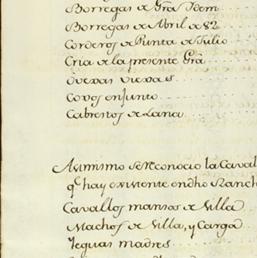 Borregas de Grã Idem
Borregas de Abril de 82
Corderos de Punta de Julio
Cria de la presente Grã
Ovejas Viejas
Covos enjunto
Cabrenos de Lana
Asimismo se Reconocio la Caval
q.e hay existente en dho Ranch
Cavallos mansos de Silla
Machos de Silla, y Carga
Yeguas madres